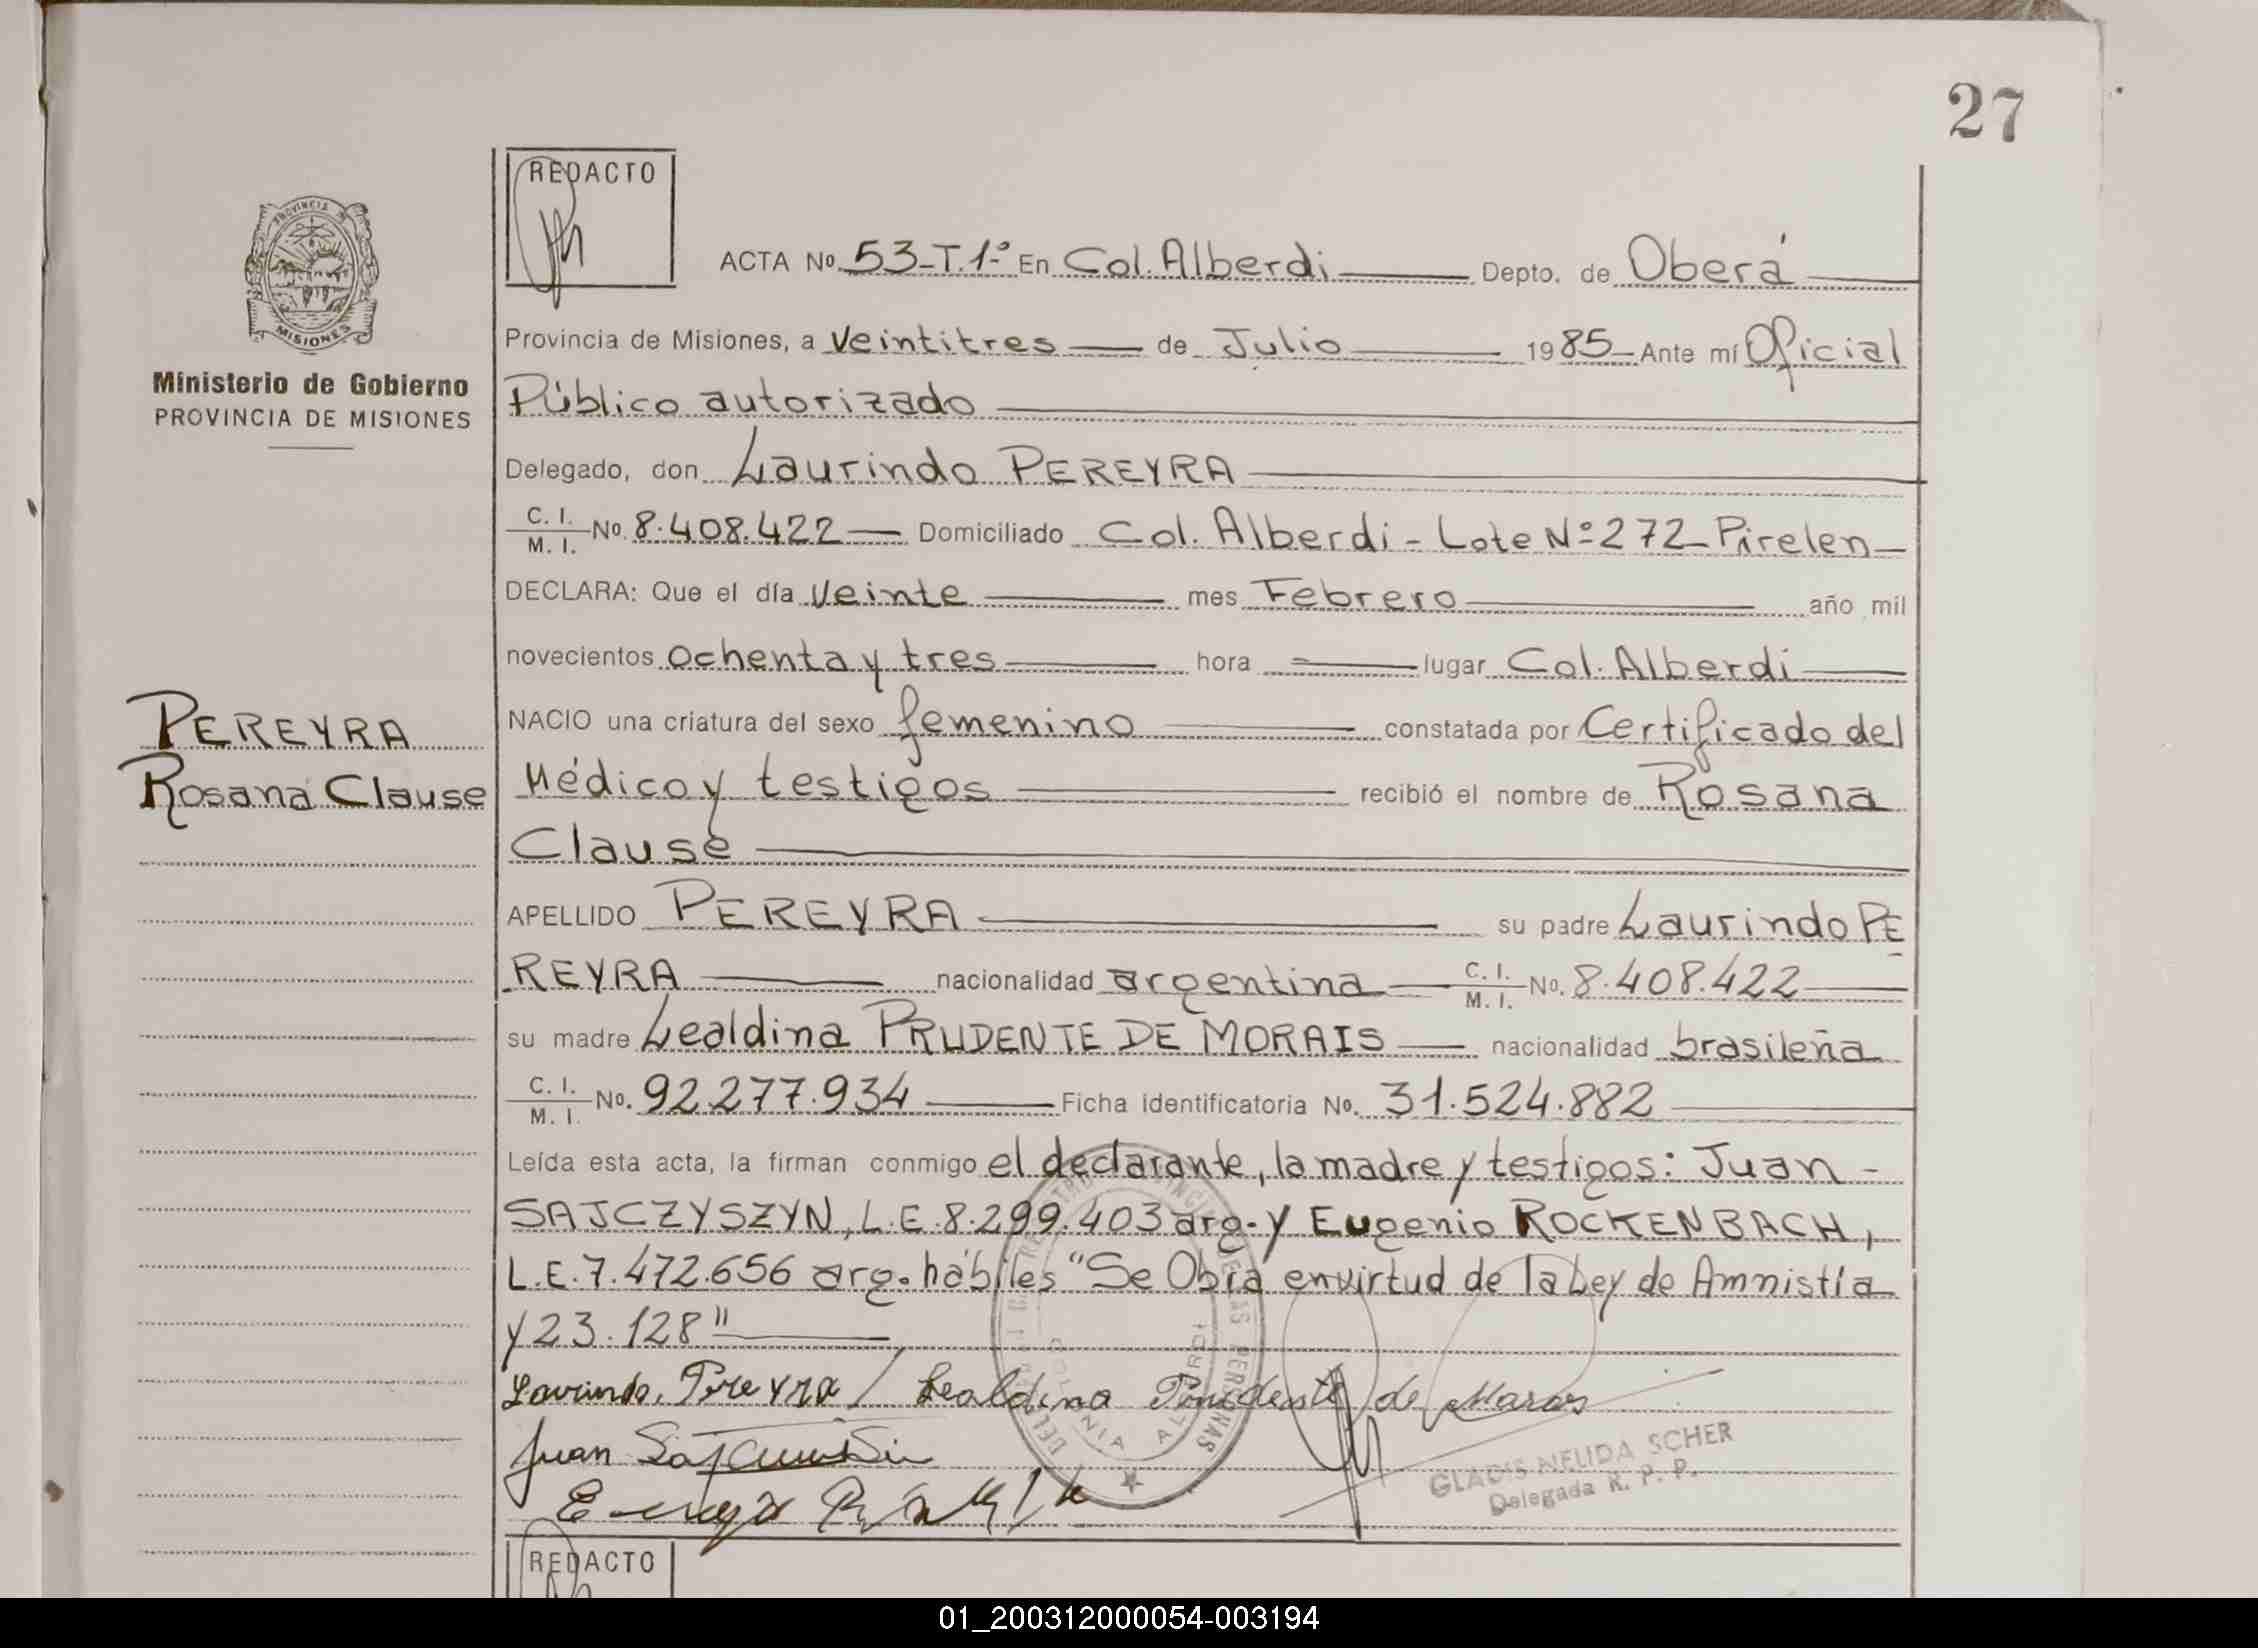 27
REDACTO
ACTA Nº 53-T.1º En Col. Alberdi Depto. de Oberá
PROVINCIA DE
MISIONES
Ministerio de Gobierno
PROVINCIA DE MISIONES
Provincia de Misiones, a veintitres de Julio 1985 Ante mí Oficial
Público autorizado
Delegado, don Laurindo PEREYRA
C. I. / M. I. Nº 8.408.422 Domiciliado Col. Alberdi - Lote Nº 272 - Pirelen
DECLARA: Que el día veinte mes Febrero año mil
novecientos ochenta y tres hora lugar Col. Alberdi
PEREYRA
Rosana Clause
NACIO una criatura del sexo femenino constatada por Certificado del
Médico y testigos recibió el nombre de Rosana
Clause
APELLIDO PEREYRA su padre Laurindo PE
REYRA nacionalidad argentina C. I. / M. I. Nº. 8.408.422
su madre Lealdina PRUDENTE DE MORAIS nacionalidad brasileña
C. I. / M. I. Nº. 92.277.934 Ficha identificatoria Nº. 31.524.882
Leída esta acta, la firman conmigo el declarante, la madre y testigos: Juan -
SAJCZYSZYN, L.E. 8.299.403 arg. y Eugenio ROCKENBACH,
L.E. 7.472.656 arg. hábiles "Se Obra en virtud de la Ley de Amnistía
y 23.128"
Laurindo Pereyra / Lealdina Prudente de Morais
Juan
COLONIA ALBERDI
GLADIS NELIDA SCHER
Delegada R. P. P.
REDACTO
01_200312000054-003194